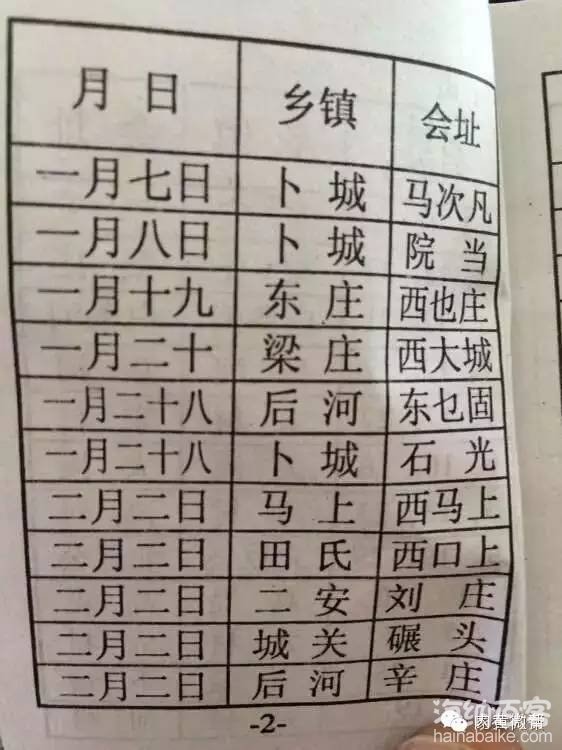 月日 乡镇 会址
一月七日 卜城 马次凡
一月八日 卜城 院当
一月十九 东庄 西也庄
一月二十 梁庄 西大城
一月二十八 后河 东乜固
一月二十八 卜城 石光
二月二日 马上 西马上
二月二日 田氏 西口上
二月二日 二安 刘庄
二月二日 城关 碾头
二月二日 后河 辛庄
-2-
海纳百客
内黄微帮
hainabaike.com